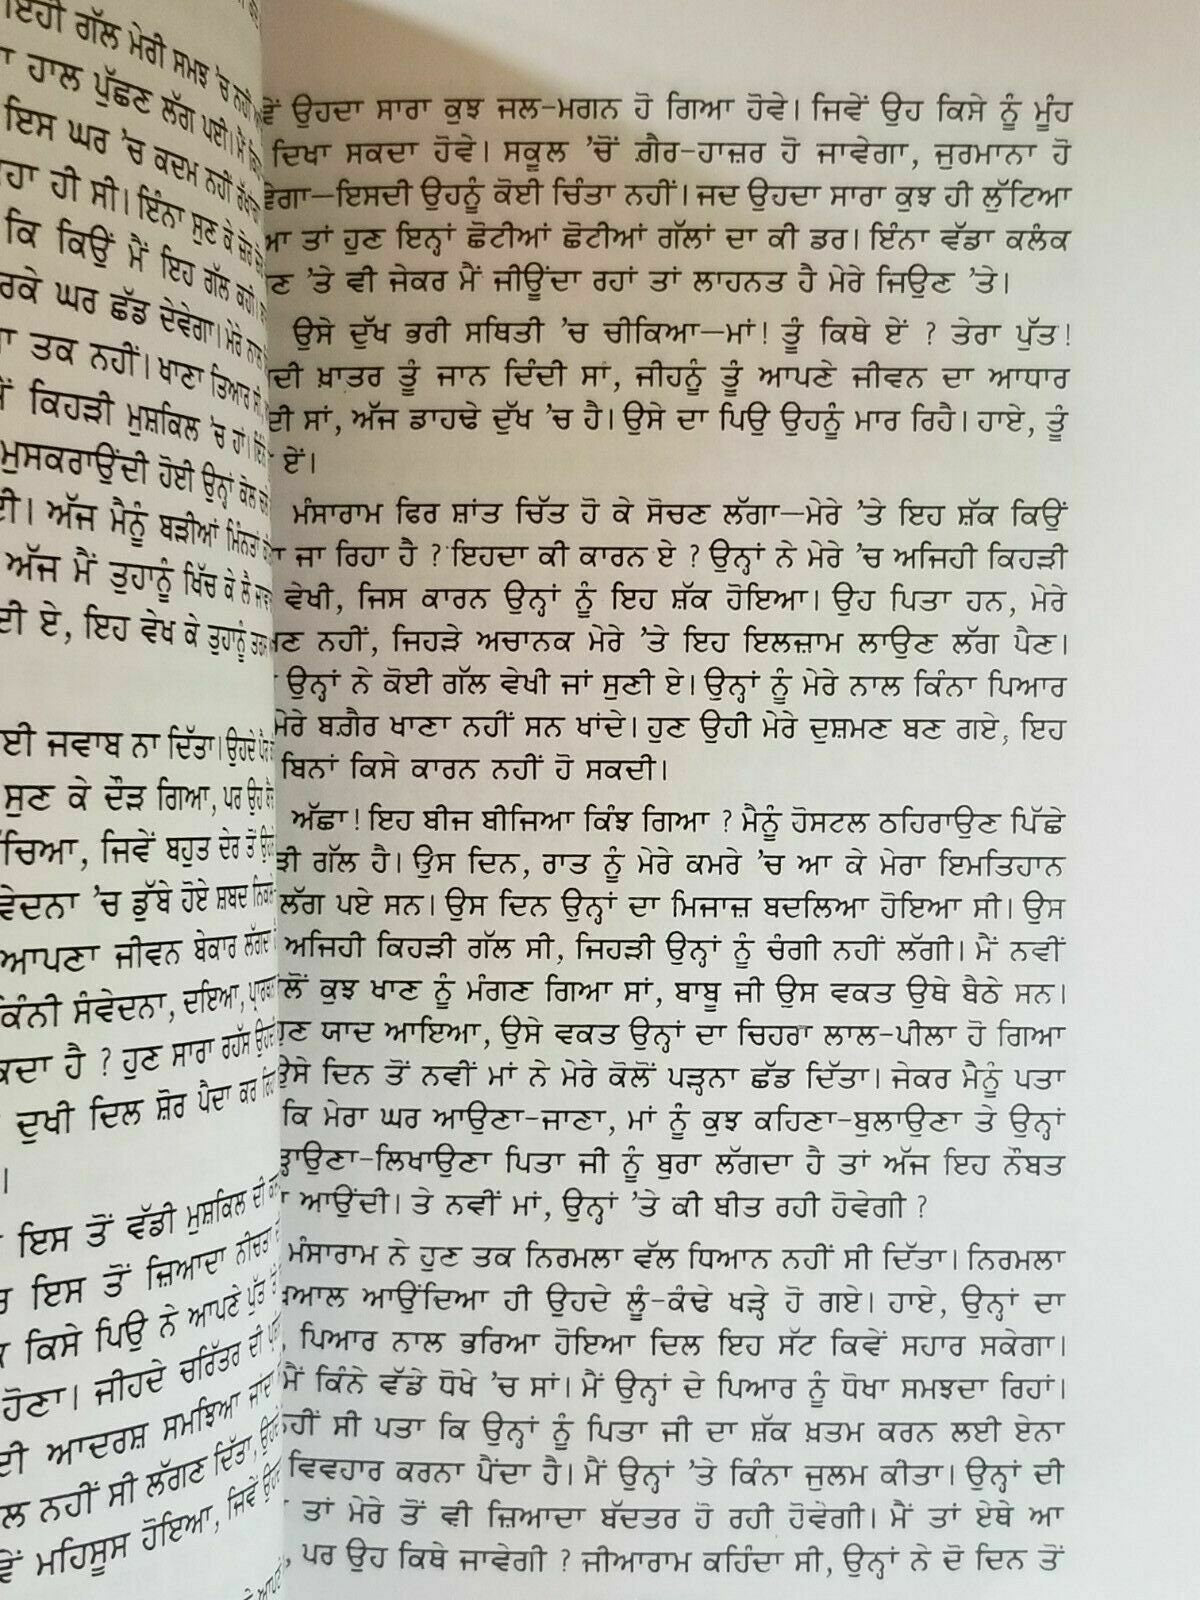 ਇਹੀ ਗੱਲ ਮੇਰੀ ਸਮਝ ’ਚ ਨਹੀਂ
ਹਾਲ ਪੁੱਛਣ ਲੱਗ ਪਈ। ਮੈਂ
ਇਸ ਘਰ ’ਚ ਕਦਮ ਨਹੀਂ ਰੱਖਾਂਗਾ
ਰਹਾ ਹੀ ਸੀ। ਇੰਨਾ ਸੁਣ ਕੇ ਜ਼ੋਰ
ਕਿ ਕਿਉਂ ਮੈਂ ਇਹ ਗੱਲ ਕਹੀ।
ਰਕੇ ਘਰ ਛੱਡ ਦੇਵੇਗਾ। ਮੇਰੇ ਨਾਲ
ਤਕ ਨਹੀਂ। ਖਾਣਾ ਤਿਆਰ ਸੀ,
ਕਿਹੜੀ ਮੁਸ਼ਕਿਲ ’ਚ ਹਾਂ।
ਮੁਸਕਰਾਉਂਦੀ ਹੋਈ ਉਨ੍ਹਾਂ ਕੋਲ
ਅੱਜ ਮੈਨੂੰ ਬੜੀਆਂ ਮਿੰਨਤਾਂ
ਅੱਜ ਮੈਂ ਤੁਹਾਨੂੰ ਖਿੱਚ ਕੇ ਲੈ
ਈ ਏ, ਇਹ ਵੇਖ ਕੇ ਤੁਹਾਨੂੰ
ਈ ਜਵਾਬ ਨਾ ਦਿੱਤਾ। ਉਹਦੇ ਪੈਰ
ਸੁਣ ਕੇ ਦੌੜ ਗਿਆ, ਪਰ ਉਹ
ਚਿਆ, ਜਿਵੇਂ ਬਹੁਤ ਦੇਰ ਤੋਂ
ਵੇਦਨਾ ’ਚ ਡੁੱਬੇ ਹੋਏ ਸ਼ਬਦ
ਆਪਣਾ ਜੀਵਨ ਬੇਕਾਰ ਲੱਗਦਾ
ਕਿੰਨੀ ਸੰਵੇਦਨਾ, ਦਇਆ,
ਕਦਾ ਹੈ ? ਹੁਣ ਸਾਰਾ ਰਹੱਸ
ਦੁਖੀ ਦਿਲ ਸ਼ੋਰ ਪੈਦਾ ਕਰ
।
ਇਸ ਤੋਂ ਵੱਡੀ ਮੁਸ਼ਕਿਲ ਦੀ
ਇਸ ਤੋਂ ਜ਼ਿਆਦਾ ਨੀਚਤਾ
ਕਿਸੇ ਪਿਓ ਨੇ ਆਪਣੇ ਪੁੱਤ
ਹੋਣਾ। ਜੀਹਦੇ ਚਰਿੱਤਰ ਦੀ
ਈ ਆਦਰਸ਼ ਸਮਝਿਆ ਜਾਂਦਾ
ਲ ਨਹੀਂ ਸੀ ਲੱਗਣ ਦਿੱਤਾ,
ਮਹਿਸੂਸ ਹੋਇਆ, ਜਿਵੇਂ
ਵੇਂ ਉਹਦਾ ਸਾਰਾ ਕੁਝ ਜਲ-ਮਗਨ ਹੋ ਗਿਆ ਹੋਵੇ। ਜਿਵੇਂ ਉਹ ਕਿਸੇ ਨੂੰ ਮੂੰਹ
ਦਿਖਾ ਸਕਦਾ ਹੋਵੇ। ਸਕੂਲ ’ਚੋਂ ਗ਼ੈਰ-ਹਾਜ਼ਰ ਹੋ ਜਾਵੇਗਾ, ਜੁਰਮਾਨਾ ਹੋ
ਵੇਗਾ—ਇਸਦੀ ਉਹਨੂੰ ਕੋਈ ਚਿੰਤਾ ਨਹੀਂ। ਜਦ ਉਹਦਾ ਸਾਰਾ ਕੁਝ ਹੀ ਲੁੱਟਿਆ
ਆ ਤਾਂ ਹੁਣ ਇਨ੍ਹਾਂ ਛੋਟੀਆਂ ਛੋਟੀਆਂ ਗੱਲਾਂ ਦਾ ਕੀ ਡਰ। ਇੰਨਾ ਵੱਡਾ ਕਲੰਕ
ਣ ’ਤੇ ਵੀ ਜੇਕਰ ਮੈਂ ਜੀਊਂਦਾ ਰਹਾਂ ਤਾਂ ਲਾਹਨਤ ਹੈ ਮੇਰੇ ਜਿਉਣ ’ਤੇ।
ਉਸੇ ਦੁੱਖ ਭਰੀ ਸਥਿਤੀ ’ਚ ਚੀਕਿਆ—ਮਾਂ! ਤੂੰ ਕਿਥੇ ਏਂ ? ਤੇਰਾ ਪੁੱਤ!
ਦੀ ਖ਼ਾਤਰ ਤੂੰ ਜਾਨ ਦਿੰਦੀ ਸਾਂ, ਜੀਹਨੂੰ ਤੂੰ ਆਪਣੇ ਜੀਵਨ ਦਾ ਆਧਾਰ
ਦੀ ਸਾਂ, ਅੱਜ ਡਾਹਢੇ ਦੁੱਖ ’ਚ ਹੈ। ਉਸੇ ਦਾ ਪਿਉ ਉਹਨੂੰ ਮਾਰ ਰਿਹੈ। ਹਾਏ, ਤੂੰ
ਏਂ।
ਮੰਸਾਰਾਮ ਫਿਰ ਸ਼ਾਂਤ ਚਿੱਤ ਹੋ ਕੇ ਸੋਚਣ ਲੱਗਾ—ਮੇਰੇ ’ਤੇ ਇਹ ਸ਼ੱਕ ਕਿਉਂ
ਜਾ ਰਿਹਾ ਹੈ ? ਇਹਦਾ ਕੀ ਕਾਰਨ ਏ ? ਉਨ੍ਹਾਂ ਨੇ ਮੇਰੇ ’ਚ ਅਜਿਹੀ ਕਿਹੜੀ
ਵੇਖੀ, ਜਿਸ ਕਾਰਨ ਉਨ੍ਹਾਂ ਨੂੰ ਇਹ ਸ਼ੱਕ ਹੋਇਆ। ਉਹ ਪਿਤਾ ਹਨ, ਮੇਰੇ
ਮਣ ਨਹੀਂ, ਜਿਹੜੇ ਅਚਾਨਕ ਮੇਰੇ ’ਤੇ ਇਹ ਇਲਜ਼ਾਮ ਲਾਉਣ ਲੱਗ ਪੈਣ।
ਉਨ੍ਹਾਂ ਨੇ ਕੋਈ ਗੱਲ ਵੇਖੀ ਜਾਂ ਸੁਣੀ ਏ। ਉਨ੍ਹਾਂ ਨੂੰ ਮੇਰੇ ਨਾਲ ਕਿੰਨਾ ਪਿਆਰ
ਮੇਰੇ ਬਗ਼ੈਰ ਖਾਣਾ ਨਹੀਂ ਸਨ ਖਾਂਦੇ। ਹੁਣ ਉਹੀ ਮੇਰੇ ਦੁਸ਼ਮਣ ਬਣ ਗਏ, ਇਹ
ਬਿਨਾਂ ਕਿਸੇ ਕਾਰਨ ਨਹੀਂ ਹੋ ਸਕਦੀ।
ਅੱਛਾ! ਇਹ ਬੀਜ ਬੀਜਿਆ ਕਿੰਝ ਗਿਆ ? ਮੈਨੂੰ ਹੋਸਟਲ ਠਹਿਰਾਉਣ ਪਿੱਛੇ
ੜੀ ਗੱਲ ਹੈ। ਉਸ ਦਿਨ, ਰਾਤ ਨੂੰ ਮੇਰੇ ਕਮਰੇ ’ਚ ਆ ਕੇ ਮੇਰਾ ਇਮਤਿਹਾਨ
ਲੱਗ ਪਏ ਸਨ। ਉਸ ਦਿਨ ਉਨ੍ਹਾਂ ਦਾ ਮਿਜਾਜ਼ ਬਦਲਿਆ ਹੋਇਆ ਸੀ। ਉਸ
ਅਜਿਹੀ ਕਿਹੜੀ ਗੱਲ ਸੀ, ਜਿਹੜੀ ਉਨ੍ਹਾਂ ਨੂੰ ਚੰਗੀ ਨਹੀਂ ਲੱਗੀ। ਮੈਂ ਨਵੀਂ
ਲੋਂ ਕੁਝ ਖਾਣ ਨੂੰ ਮੰਗਣ ਗਿਆ ਸਾਂ, ਬਾਬੂ ਜੀ ਉਸ ਵਕਤ ਉਥੇ ਬੈਠੇ ਸਨ।
ਹੁਣ ਯਾਦ ਆਇਆ, ਉਸੇ ਵਕਤ ਉਨ੍ਹਾਂ ਦਾ ਚਿਹਰਾ ਲਾਲ-ਪੀਲਾ ਹੋ ਗਿਆ
ਉਸੇ ਦਿਨ ਤੋਂ ਨਵੀਂ ਮਾਂ ਨੇ ਮੇਰੇ ਕੋਲੋਂ ਪੜ੍ਹਨਾ ਛੱਡ ਦਿੱਤਾ। ਜੇਕਰ ਮੈਨੂੰ ਪਤਾ
ਕਿ ਮੇਰਾ ਘਰ ਆਉਣਾ-ਜਾਣਾ, ਮਾਂ ਨੂੰ ਕੁਝ ਕਹਿਣਾ-ਬੁਲਾਉਣਾ ਤੇ ਉਨ੍ਹਾਂ
ੜ੍ਹਾਉਣਾ-ਲਿਖਾਉਣਾ ਪਿਤਾ ਜੀ ਨੂੰ ਬੁਰਾ ਲੱਗਦਾ ਹੈ ਤਾਂ ਅੱਜ ਇਹ ਨੌਬਤ
ਆਉਂਦੀ। ਤੇ ਨਵੀਂ ਮਾਂ, ਉਨ੍ਹਾਂ ’ਤੇ ਕੀ ਬੀਤ ਰਹੀ ਹੋਵੇਗੀ ?
ਮੰਸਾਰਾਮ ਨੇ ਹੁਣ ਤਕ ਨਿਰਮਲਾ ਵੱਲ ਧਿਆਨ ਨਹੀਂ ਸੀ ਦਿੱਤਾ। ਨਿਰਮਲਾ
ਖ਼ਿਆਲ ਆਉਂਦਿਆ ਹੀ ਉਹਦੇ ਲੂੰ-ਕੰਢੇ ਖੜ੍ਹੇ ਹੋ ਗਏ। ਹਾਏ, ਉਨ੍ਹਾਂ ਦਾ
ਪਿਆਰ ਨਾਲ ਭਰਿਆ ਹੋਇਆ ਦਿਲ ਇਹ ਸੱਟ ਕਿਵੇਂ ਸਹਾਰ ਸਕੇਗਾ।
ਮੈਂ ਕਿੰਨੇ ਵੱਡੇ ਧੋਖੇ ’ਚ ਸਾਂ। ਮੈਂ ਉਨ੍ਹਾਂ ਦੇ ਪਿਆਰ ਨੂੰ ਧੋਖਾ ਸਮਝਦਾ ਰਿਹਾਂ।
ਨਹੀਂ ਸੀ ਪਤਾ ਕਿ ਉਨ੍ਹਾਂ ਨੂੰ ਪਿਤਾ ਜੀ ਦਾ ਸ਼ੱਕ ਖ਼ਤਮ ਕਰਨ ਲਈ ਏਨਾ
ਵਿਵਹਾਰ ਕਰਨਾ ਪੈਂਦਾ ਹੈ। ਮੈਂ ਉਨ੍ਹਾਂ ’ਤੇ ਕਿੰਨਾ ਜੁਲਮ ਕੀਤਾ। ਉਨ੍ਹਾਂ ਦੀ
ਤਾਂ ਮੇਰੇ ਤੋਂ ਵੀ ਜ਼ਿਆਦਾ ਬੱਦਤਰ ਹੋ ਰਹੀ ਹੋਵੇਗੀ। ਮੈਂ ਤਾਂ ਏਥੇ ਆ
, ਪਰ ਉਹ ਕਿਥੇ ਜਾਵੇਗੀ ? ਜੀਆਰਾਮ ਕਹਿੰਦਾ ਸੀ, ਉਨ੍ਹਾਂ ਨੇ ਦੋ ਦਿਨ ਤੋਂ